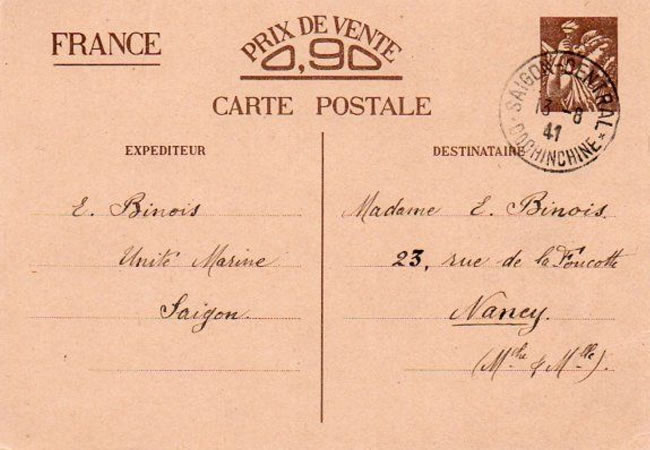 FRANCE
PRIX DE VENTE
0,90
CARTE POSTALE
SAIGON-CENTRAL
13-8
41
COCHINCHINE
EXPEDITEUR
E. Binois
Unité Marine
Saigon.
DESTINATAIRE
Madame E. Binois.
23, rue de la Foucotte
Nancy.
(Mthe & Mlle).